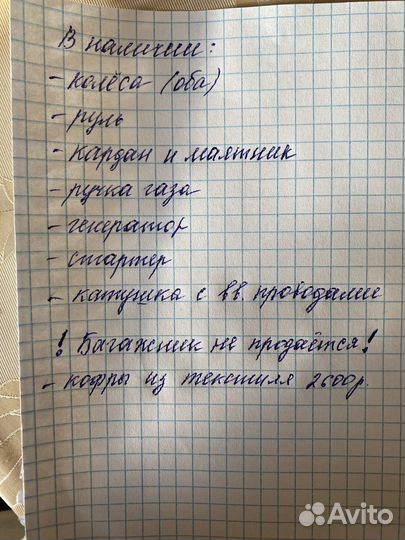 В наличии:
- колёса (оба)
- руль
- кардан и маятник
- ручка газа
- генератор
- стартер
- катушка с вв. проводами
! Багажник не продаётся!
- кофры из текстиля 2600р.
Avito